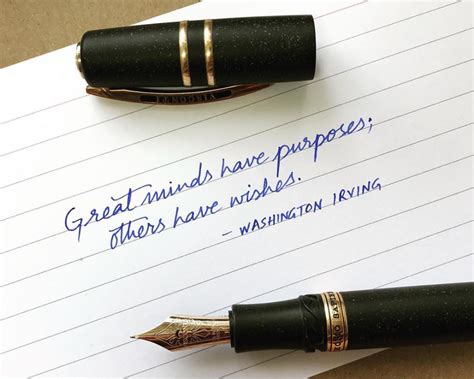 VISCONTI
Great minds have purposes;
others have wishes.
- WASHINGTON IRVING